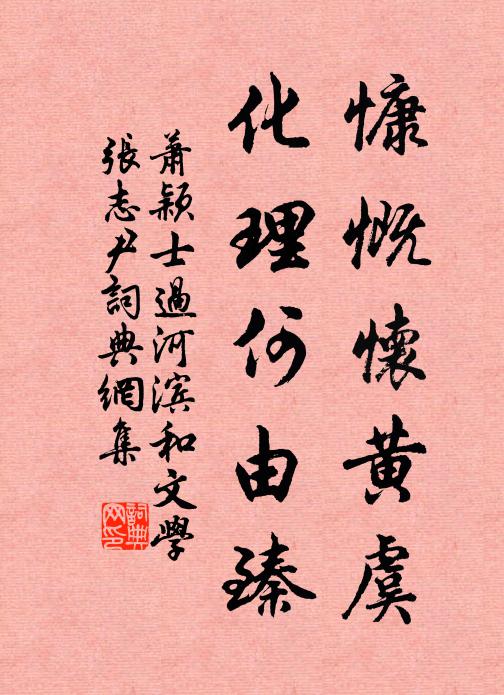 慷慨懷黄虞
化理何由臻
蕭颖士過河滨和文學
張志尹詞典網集
詞典
网印